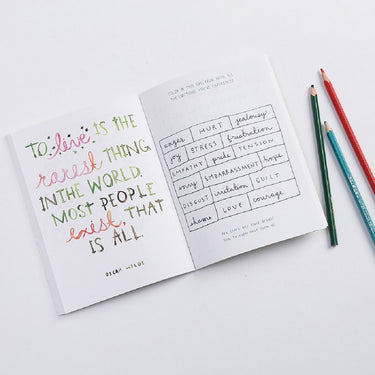 TO live IS THE
rarest THING
IN THE WORLD.
MOST PEOPLE
exist, THAT
IS ALL.
OSCAR WILDE
COLOR IN THIS
THE EMOTIONS YOU'VE EXPERIENCED
anger HURT jealousy
joy STRESS frustration
EMPATHY pride TENSION
envy EMBARRASSMENT hope
DISGUST irritation GUILT
shame LOVE courage